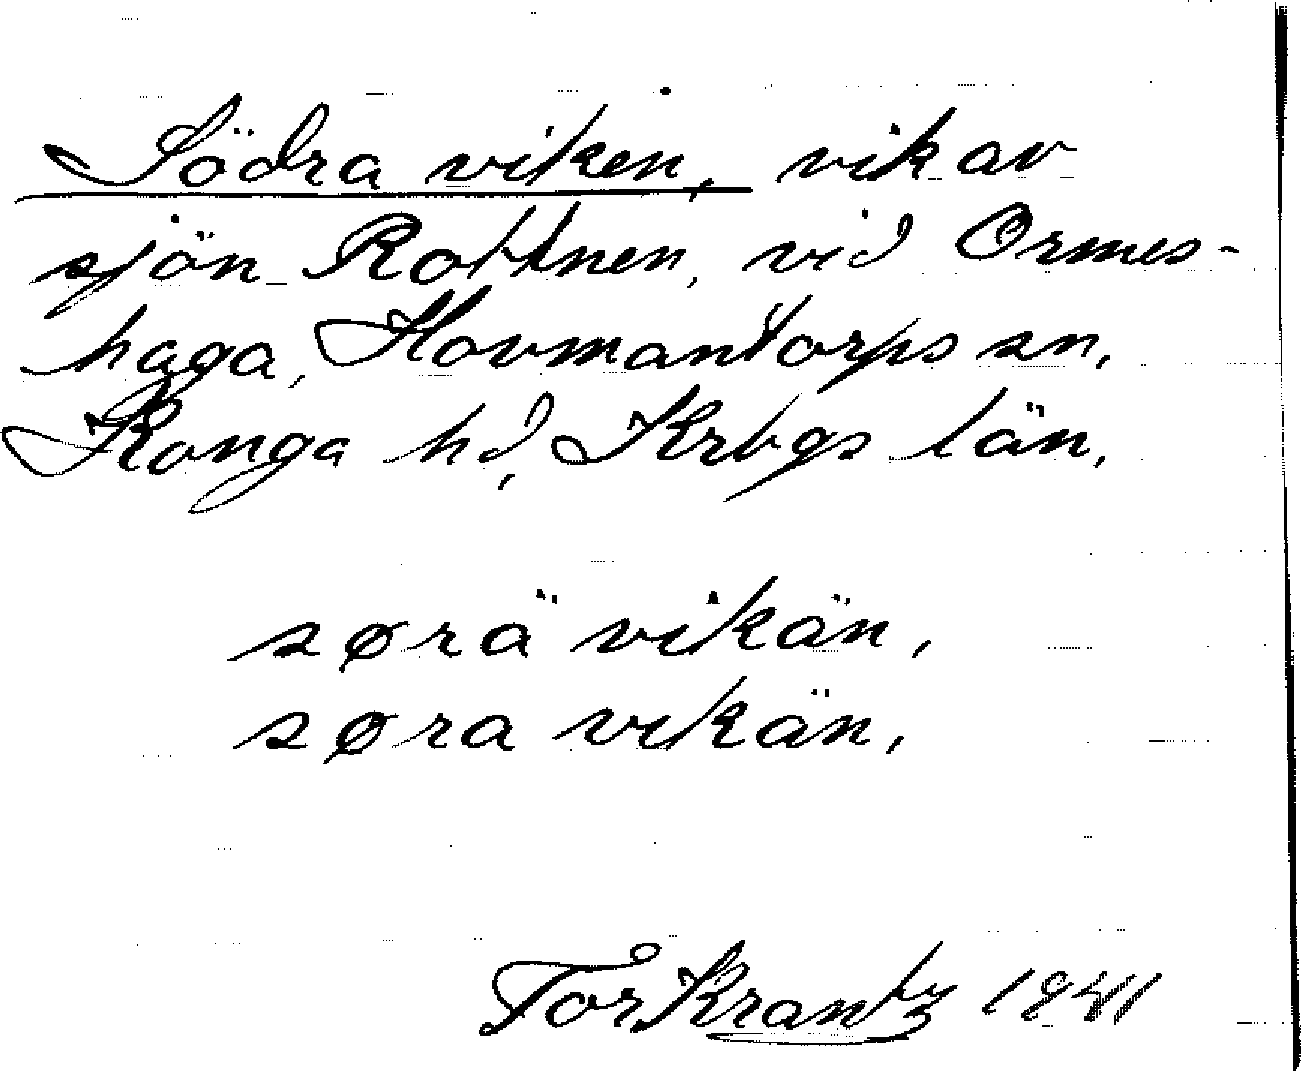 Södra viken, vik av
sjön Rottnen, vid Ormes-
haga, Hovmantorps sn,
Konga hd, Krbgs län.
sørä vikän,
søra vikän,
Tor Krantz 1941